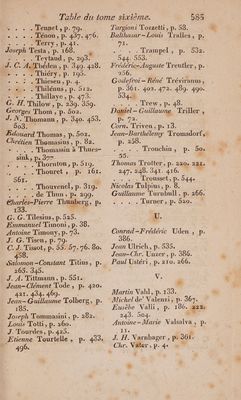 Table du tome sixième. 585
. . . . Tenpet, p. 79.
. . . . Ténon, p. 437. 476.
. . . . Terry, p. 41.
Joseph Testa, p. 168.
. . . . Teytaud, p. 293.
J. C. A. Théden, p. 349. 428.
. . . . Thiéry, p. 195.
. . . . Thiesen, p. 4.
. . . . Thilénus, p. 512.
. . . . Thillaye, p. 473.
G. H. Thilow, p. 239. 359.
George Thom, p. 602.
J. N. Thomann, p. 340. 453.
503.
Edouard Thomas, p. 502.
Chrétien Thomasius, p. 81.
. . . . Thomassin à Thues-
sink, p. 377.
. . . . Thornton, p. 519.
. . . . Thouret, p. 161.
561.
. . . . Thouvenel, p. 319.
. . . . de Thun, p. 299.
Charles-Pierre Thunberg, p.
133.
G. G. Tilesius, p. 525.
Emmanuel Timoni, p. 38.
Antoine Timony, p. 73.
J. G. Tisen, p. 79.
C. J. Tissot, p. 55. 67. 76. 80.
458.
Salomon-Constant Titius, p.
265. 345.
J. A. Tittmann, p. 551.
Jean-Clément Tode, p. 420.
421. 434. 469.
Jean-Guillaume Tolberg, p.
185.
Joseph Tommasini, p. 282.
Louis Totti, p. 260.
J. Tourdes, p. 425.
Etienne Tourtelle, p. 433,
496.
Targioni Tozzetti, p. 58.
Balthasar-Louis Tralles, p.
71.
. . . . Trampel, p. 532.
544. 553.
Frédéric-Auguste Treutler, p.
256.
Godefroi-René Tréviranus,
p. 361. 402. 472. 489. 490.
534.
. . . . Trew, p. 48.
Daniel-Guillaume Triller,
p. 72.
Corn. Trioen, p. 13.
Jean-Barthélemy Tromsdorf,
p. 258.
. . . . Tronchin, p. 50.
55.
Thomas Trotter, p. 220. 221.
247. 248. 341. 416.
. . . . Trousset, p. 544.
Nicolas Tulpius, p. 8.
Guillaume Turnbull, p. 266.
. . . . Turner, p. 520.
U.
Conrad-Frédéric Uden, p.
386.
Jean Ulrich, p. 535.
Jean-Chr. Unzer, p. 386.
Paul Ustéri, p. 210. 266.
V.
Martin Vahl, p. 133.
Michel de' Valenzi, p. 367.
Eusèbe Valli, p. 186. 222.
243. 504.
Antoine-Marie Valsalva, p.
11.
J. H. Varnhager, p. 361.
Chr. Vater, p. 4.